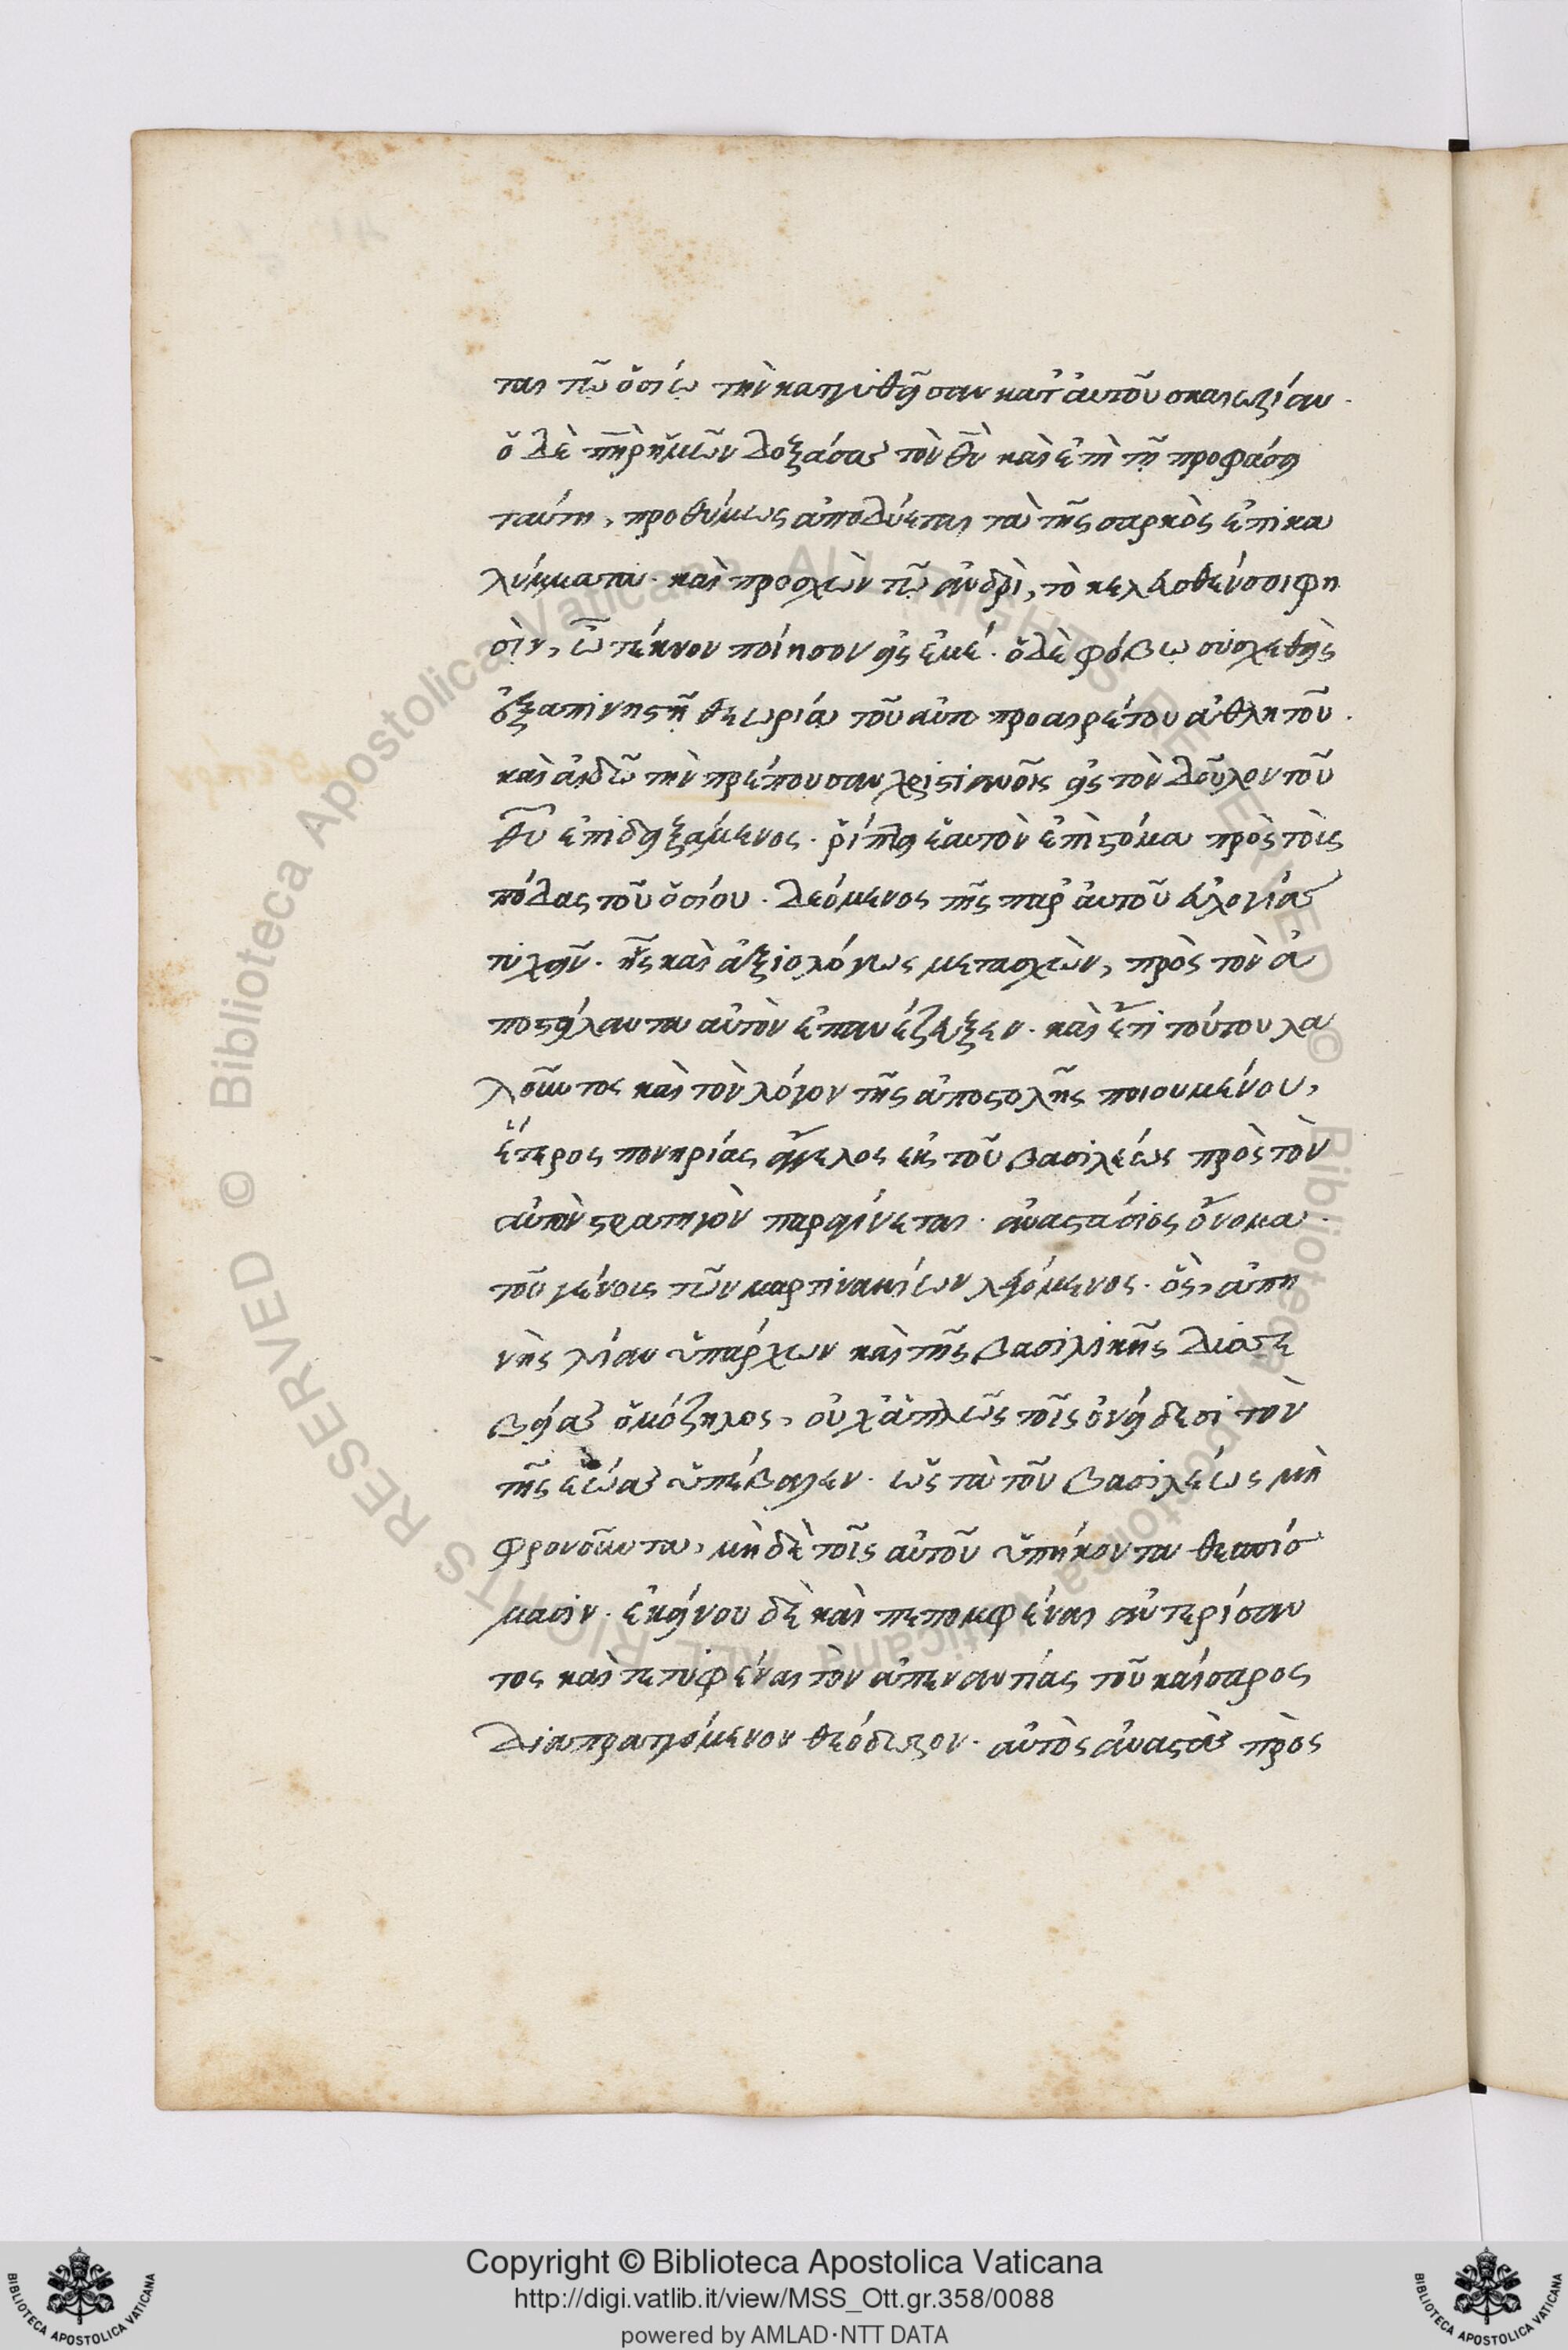 ται τῶ ὁσίω τὴν κατηυθεῖσαν κατ' αὐτοῦ σκαιωρίαν.
ὁ δὲ πη̅ρ ἡμῶν δοξάσας τὸν θν̅ καὶ ἐπὶ τῆ προφάσει
ταύτη, προθύμως ἀποδύεται τὰ τῆς σαρκὸς ἐπικα
λύμματα. καὶ προσχὼν τῶ ἀνδρὶ, τὸ κελευσθέν σοι φη
σὶν, ὦ τέκνον ποίησον εἰς ἐμέ. ὁ δὲ φόβω συσχεθεὶς
ἐξαπίνης τῆ θεωρία τοῦ αὐτοπροαιρέτου ἀθλητοῦ.
καὶ αἰδῶ τὴν πρέπουσαν χριστιανοῖς εἰς τὸν δοῦλον τοῦ
θυ̅ ἐπιδειξάμενος. ῥίπτει ἑαυτὸν ἐπὶ στόμα πρὸς τοὺς
πόδας τοῦ ὁσίου. δεόμενος τῆς παρ' αὐτοῦ εὐλογίας
τυχεῖν. ἧς καὶ ἀξιολόγως μετασχὼν, πρὸς τὸν ἀ
ποστείλαντα αὐτὸν ἐπανέζευξεν. καὶ ἔτι τούτου λα
λοῦντος καὶ τὸν λόγον τῆς ἀποστολῆς ποιουμένου,
ἕτερος πονηρίας ἄγγελος ἐκ τοῦ βασιλέως πρὸς τὸν
αὐτὸν στρατηγὸν παραγίνεται. ἀναστάσιος ὄνομα.
τοῦ γένους τῶν μαρτινακίων λεγόμενος. ὃς, ἀπη
νὴς λίαν ὑπάρχων καὶ τῆς βασιλικῆς δυσσε
βείας ὁμόζηλος, οὐχ ἁπλῶς τοῖς ὀνείδεσι τὸν
τῆς ἑώας ὑπέβαλεν. ὡς τὰ τοῦ βασιλέως μὴ
φρονοῦντα, μηδὲ τοῖς αὐτοῦ ὑπήκοντα θεσπίσ
μασιν. ἐκείνου δὲ καὶ πεπομφέναι ἀντερίσαν
τος καὶ τετυφέναι τὸν ἀπεναντίας τοῦ καίσαρος
διαπραττόμενον θεόδωρον. αὐτὸς ἀναστὰς πρὸς
Copyright © Biblioteca Apostolica Vaticana
http://digi.vatlib.it/view/MSS_Ott.gr.358/0088
powered by AMLAD·NTT DATA